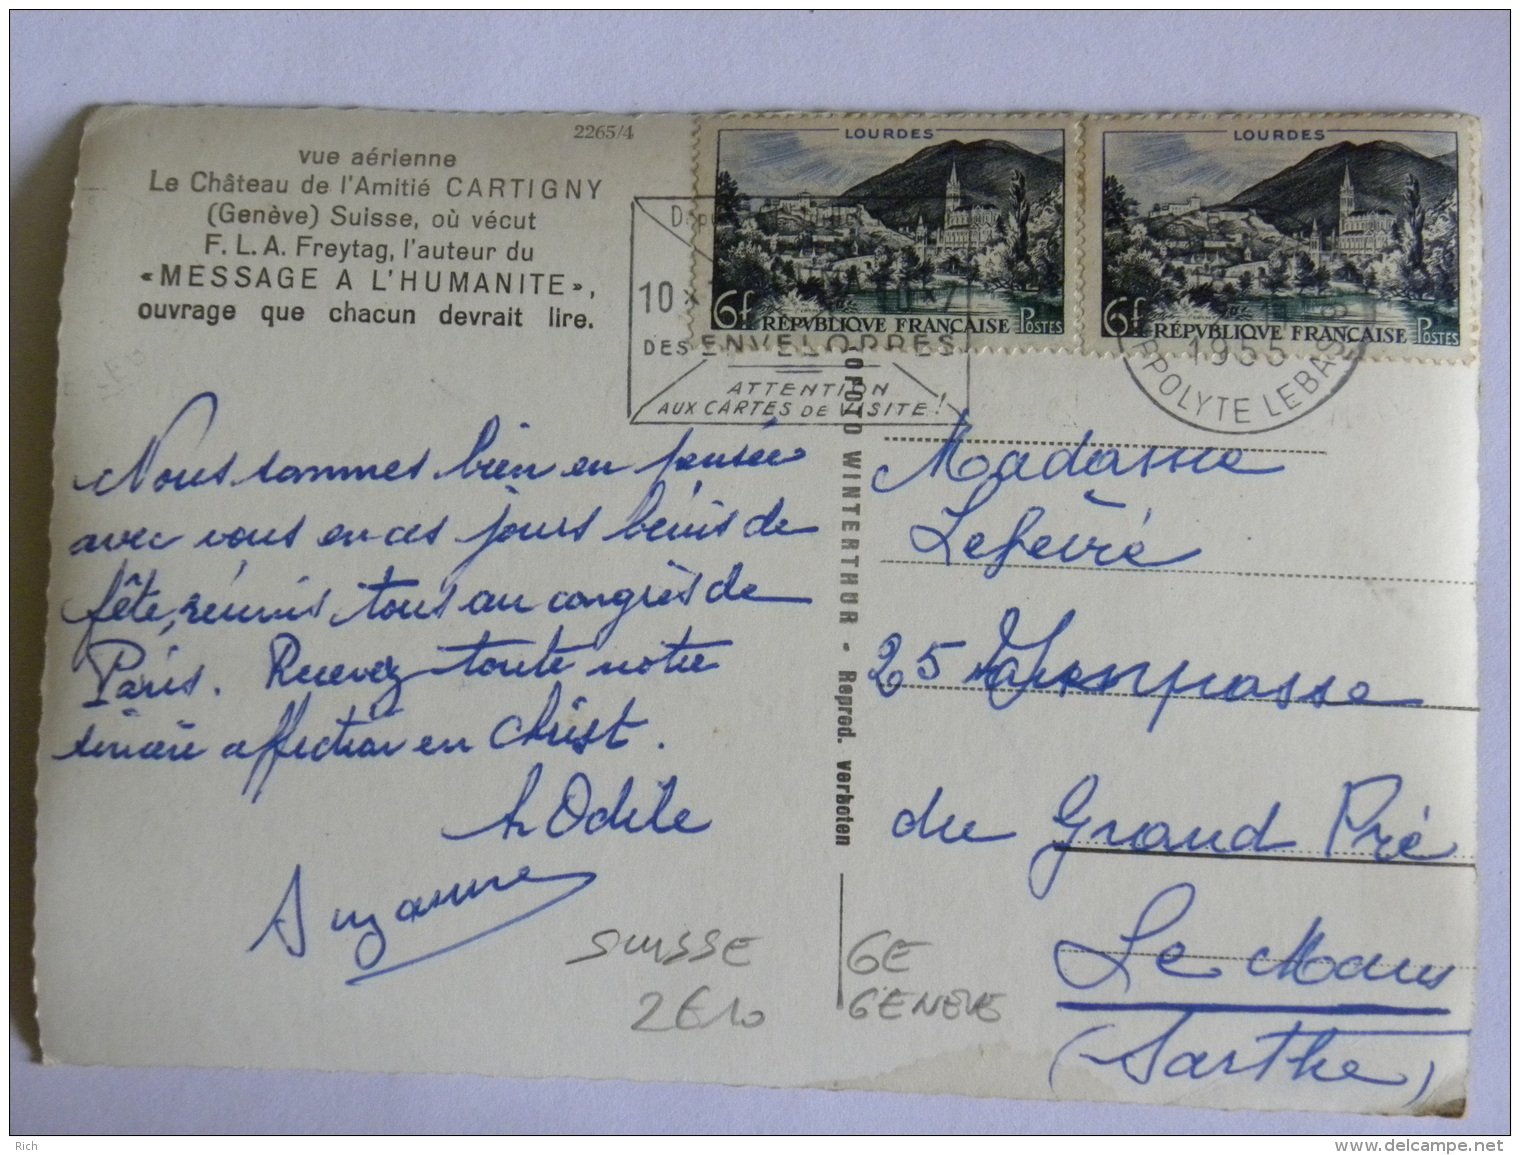 2265/4
vue aérienne
Le Château de l'Amitié CARTIGNY
(Genève) Suisse, où vécut
F. L. A. Freytag, l'auteur du
«MESSAGE A L'HUMANITE»,
ouvrage que chacun devrait lire.
LOURDES
6f RÉPVBLIQVE FRANÇAISE POSTES
LOURDES
6f RÉPVBLIQVE FRANÇAISE POSTES
10 ×
DES ENVELOPPES
ATTENTION
AUX CARTES DE VISITE!
1955
POLYTE LEBAS
Nous sommes bien en pensée
avec vous en ces jours bénis de
fête, réunis tous au congrès de
Paris. Recevez toute notre
sincère affection en Christ.
Odile
Suzanne
WINTERTHUR - Reprod. verboten
Madame
Lefèvre
25 Impasse
du Grand Pré
Le Mans
(Sarthe)
SUISSE
2€10
GE
GENEVE
Rich
© delcampe.net